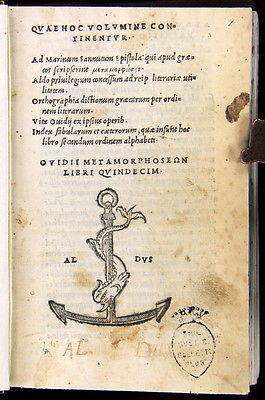 QVAE HOC VOLVMINE CON-
TINENTVR.
Ad Marinum Sannutum Epistola qui apud græ-
cos scripserint μεταμορφώσεις.
Aldo priuilegium concessum ad reip. literariæ uti-
litatem.
Orthographia dictionum græcarum per ordi-
nem literarum.
Vita Ouidij ex ipsius operib.
Index fabularum et cæterorum, quæ insunt hoc
libro secundum ordinem alphabeti.
OVIDII METAMORPHOSEΩN
LIBRI QVINDECIM.
AL DVS
AL